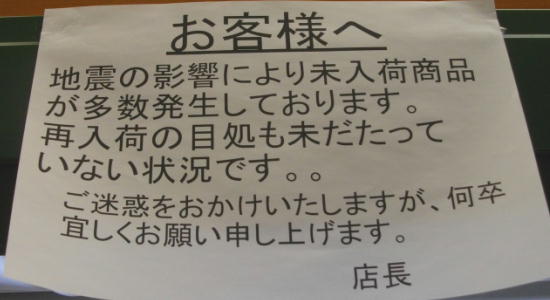 お客様へ
地震の影響により未入荷商品
が多数発生しております。
再入荷の目処も未だたって
いない状況です。。
ご迷惑をおかけいたしますが、何卒
宜しくお願い申し上げます。
店長